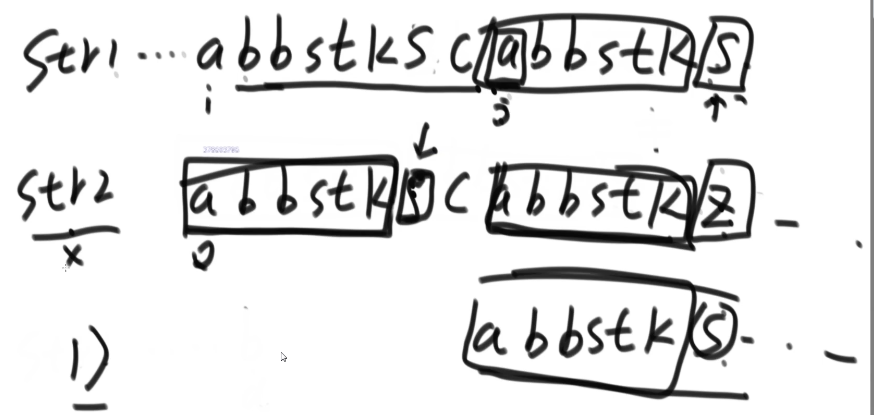 str1 .... a b b s t k s c a b b s t k s
i j ↑
378603795
str2 a b b s t k s c a b b s t k z -
x 0
a b b s t k s - . -
1)